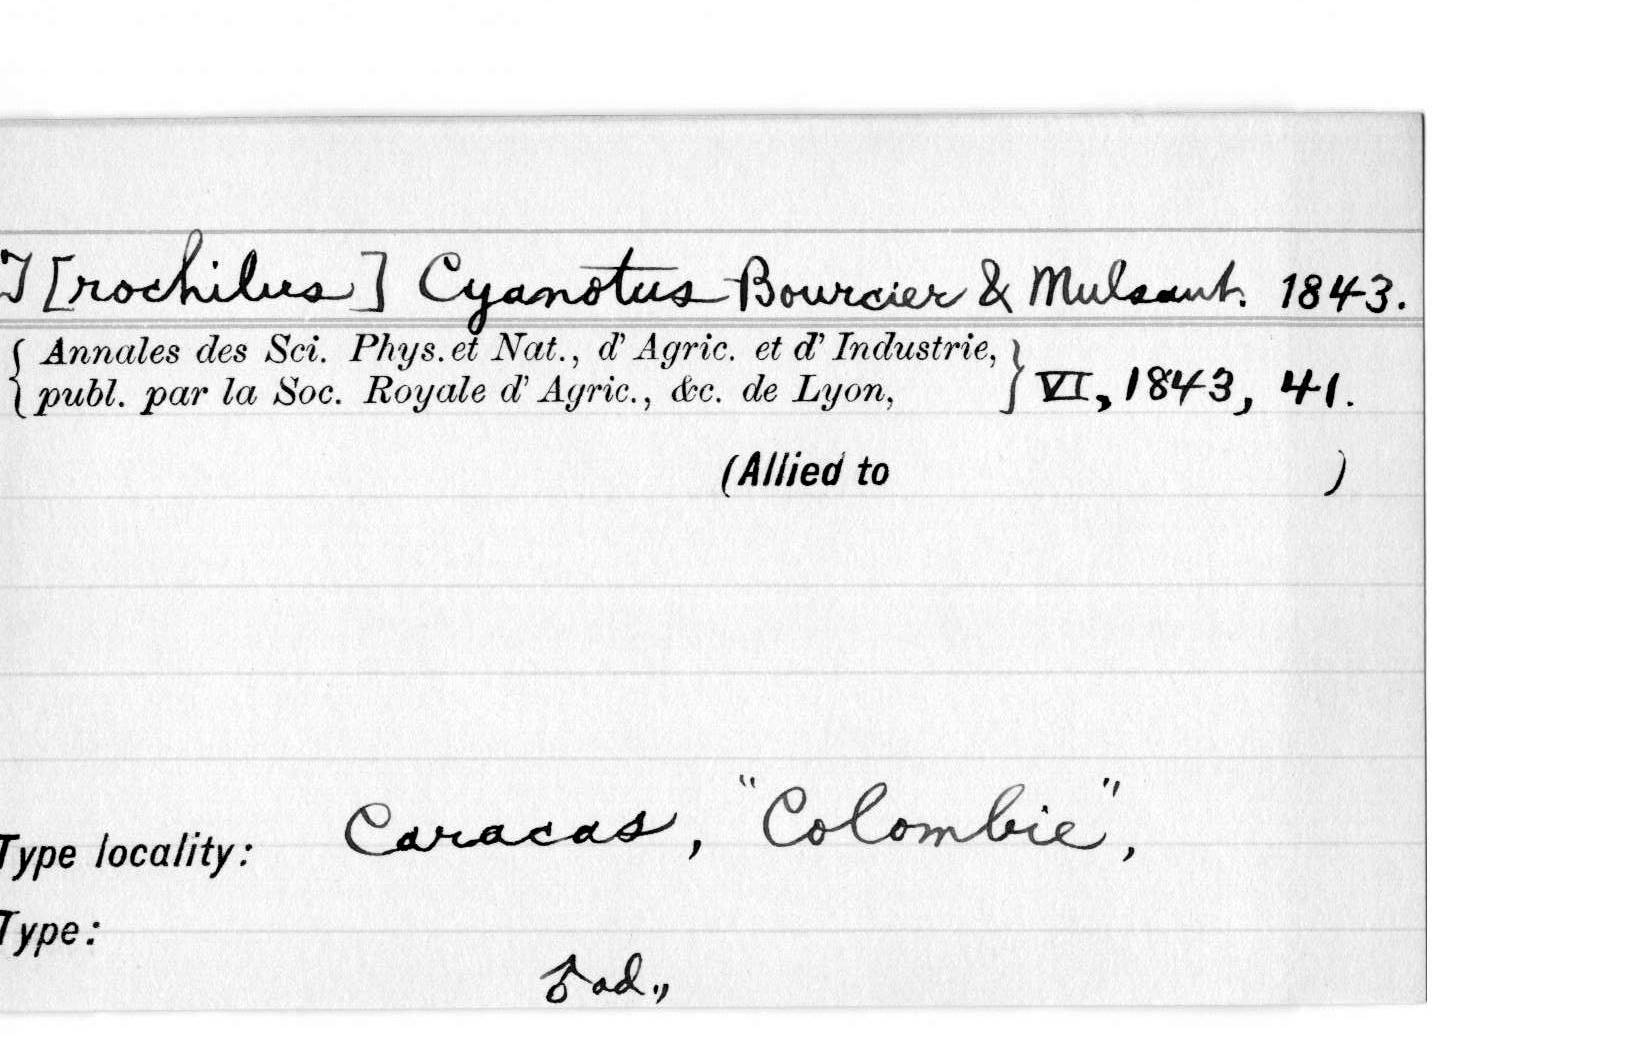 T[rochilus] Cyanotus Bourcier & Mulsant. 1843.
{ Annales des Sci. Phys. et Nat., d'Agric. et d'Industrie,
publ. par la Soc. Royale d'Agric., &c. de Lyon, } VI, 1843, 41.
(Allied to )
Type locality: Caracas, "Colombie",
Type:
♂ ad.,